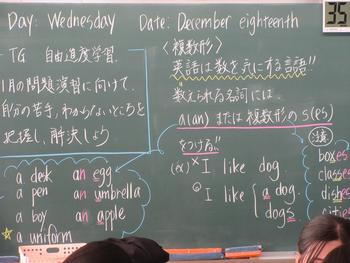 Day: Wednesday Date: December eighteenth
35
TG 自由進度学習.
1月の問題演習に向けて.
自分の苦手、わからないところを
把握し、解決しよう
a desk an egg
a pen an umbrella
a boy an apple
☆ a uniform
〈複数形〉
英語は数を気にする言語!!
数えられる名詞には、
a(an) または複数形の s(es)
をつける!!
(ex) × I like dog
○ I like { a dog.
dogs.
注意
boxes
classes
dishes
cities